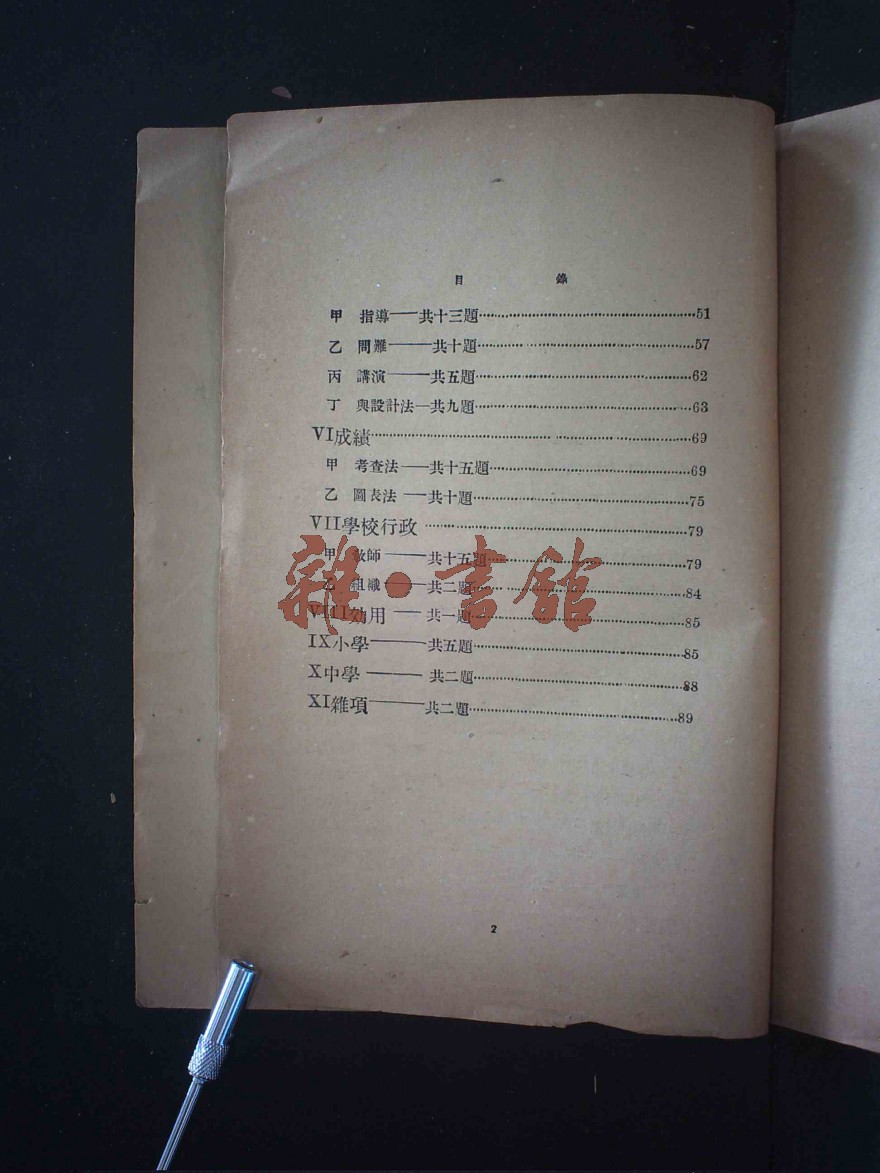 目錄
甲 指導——共十三題……51
乙 問難——共十題……57
丙 講演——共五題……62
丁 與設計法—共九題……63
VI成績……69
甲 考查法——共十五題……69
乙 圖表法——共十題……75
VII學校行政……79
甲 教師——共十五題……79
乙 組織——共二題……84
VIII効用——共一題……85
IX小學——共五題……85
X中學——共二題……88
XI雜項——共二題……89
雜·書館
2